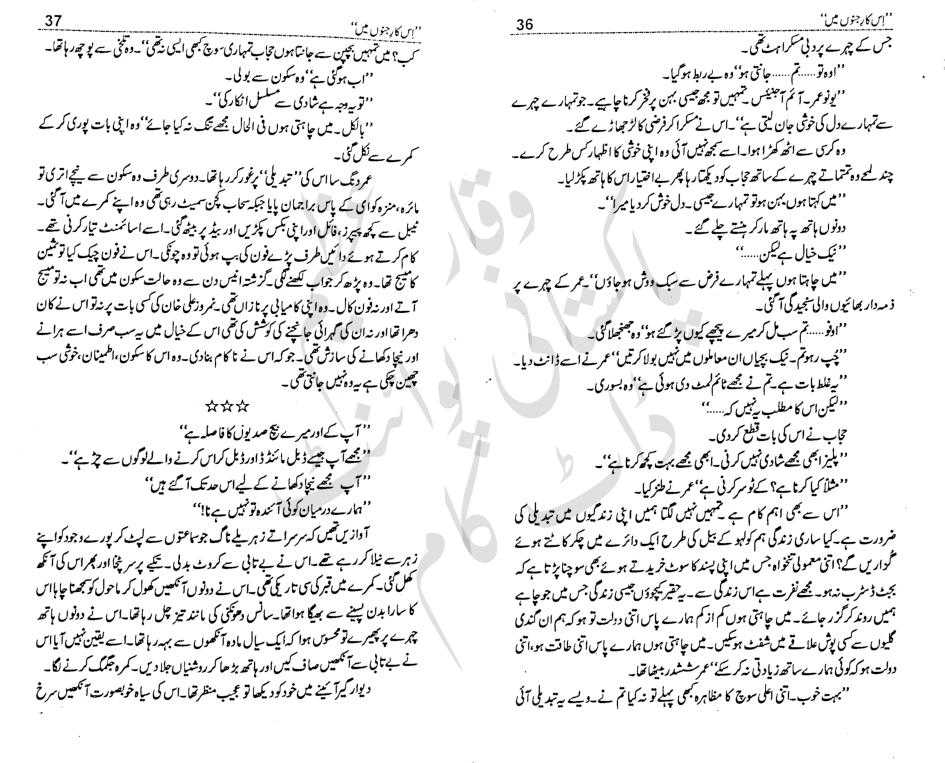 ’’اِس کارِ جنوں میں‘‘
36
جس کے چہرے پر دبی مسکراہٹ تھی۔
’’اوہ تو......تم......جانتی ہو‘‘ وہ بے ربط ہو گیا۔
’’یونو عمر۔ آئم آ جینئس۔ تمہیں تو مجھ جیسی بہن پر فخر کرنا چاہیے۔ جو تمہارے چہرے
سے تمہارے دل کی خوشی جان لیتی ہے‘‘۔ اس نے مسکرا کر فرضی کالر جھاڑے گئے۔
وہ کرسی سے اٹھ کھڑا ہوا۔ اسے سمجھ نہیں آئی وہ اپنی خوشی کا اظہار کس طرح کرے۔
چند لمحے وہ تمتماتے چہرے کے ساتھ حجاب کو دیکھتا رہا پھر بے اختیار اس کا ہاتھ پکڑ لیا۔
’’میں کہتا ہوں بہن ہو تو تمہارے جیسی۔ دل خوش کر دیا میرا‘‘۔
دونوں ہاتھ پہ ہاتھ مار کر ہنستے چلے گئے۔
’’نیک خیال ہے لیکن......‘‘
’’میں چاہتا ہوں پہلے تمہارے فرض سے سبک دوش ہو جاؤں‘‘۔ عمر کے چہرے پر
ذمہ دار بھائیوں والی سنجیدگی آ گئی۔
’’اوفو......تم سب مل کر میرے پیچھے کیوں پڑ گئے ہو‘‘ وہ جھنجھلا گئی۔
’’چپ رہو تم۔ نیک بچیاں ان معاملوں میں نہیں بولا کرتیں‘‘ عمر نے اسے ڈانٹ دیا۔
’’یہ غلط بات ہے۔ تم نے مجھے ٹائم لمٹ دی ہوئی ہے‘‘ وہ بسوری۔
’’لیکن اس کا مطلب یہ نہیں کہ......‘‘
حجاب نے اس کی بات قطع کر دی۔
’’پلیز ابھی مجھے شادی نہیں کرنی۔ ابھی مجھے بہت کچھ کرنا ہے‘‘۔
’’مثلاً کیا کرنا ہے؟ کے ٹو سر کرنی ہے‘‘ عمر نے طنز کیا۔
’’اس سے بھی اہم کام ہے۔ تمہیں نہیں لگتا ہمیں اپنی زندگیوں میں تبدیلی کی
ضرورت ہے۔ کیا ساری زندگی ہم کولہو کے بیل کی طرح ایک دائرے میں چکر کاٹتے ہوئے
گزاریں گے؟ اتنی معمولی تنخواہ جس میں اپنی پسند کا سوٹ خریدتے ہوئے بھی سوچنا پڑتا ہے کہ
بجٹ ڈسٹرب نہ ہو۔ مجھے نفرت ہے اس زندگی سے۔ یہ حقیر کیچوؤں جیسی زندگی جس میں جو چاہے
ہمیں روند کر گزر جائے۔ میں چاہتی ہوں کم از کم ہمارے پاس اتنی دولت تو ہو کہ ہم ان گندی
گلیوں سے کسی پوش علاقے میں شفٹ ہو سکیں۔ میں چاہتی ہوں ہمارے پاس اتنی طاقت ہو، اتنی
دولت ہو کہ کوئی ہمارے ساتھ زیادتی نہ کر سکے‘‘ عمر ششدر بیٹھا تھا۔
’’بہت خوب۔ اتنی اعلی سوچ کا مظاہرہ کبھی پہلے تو نہ کیا تم نے۔ ویسے یہ تبدیلی آئی
’’اِس کارِ جنوں میں‘‘
37
کب؟ میں تمہیں بچپن سے جانتا ہوں حجاب تمہاری سوچ کبھی ایسی نہ تھی‘‘۔ وہ تلخی سے پوچھ رہا تھا۔
’’اب ہو گئی ہے‘‘ وہ سکون سے بولی۔
’’تو یہ وجہ ہے شادی سے مسلسل انکار کی‘‘۔
’’بالکل۔ میں چاہتی ہوں فی الحال مجھے تنگ نہ کیا جائے‘‘ وہ اپنی بات پوری کر کے
کمرے سے نکل گئی۔
عمر دنگ سا اس کی ’’تبدیلی‘‘ پر غور کر رہا تھا۔ دوسری طرف وہ سکون سے نیچے اتری تو
مائرہ، منزہ کو امی کے پاس براجمان پایا جبکہ سحاب کچن سمیٹ رہی تھی وہ اپنے کمرے میں آ گئی۔
ٹیبل سے کچھ پیپرز، فائل اور اپنی بکس پکڑیں اور بیڈ پر بیٹھ گئی۔ اسے اسائمنٹ تیار کرنی تھی۔
کام کرتے ہوئے دائیں طرف پڑے فون کی بپ ہوئی تو وہ چونکی۔ اس نے فون چیک کیا تو شین
کا میسج تھا۔ وہ پڑھ کر جواب لکھنے لگی۔ گزشتہ انیس دن سے وہ حالت سکون میں تھی اب نہ تو میسج
آتے اور نہ فون کال۔ وہ اپنی کامیابی پر نازاں تھی۔ نمروز علی خان کی کسی بات پر نہ تو اس نے کان
دھرا تھا اور نہ ان کی گہرائی جانچنے کی کوشش کی تھی اس کے خیال میں یہ سب صرف اسے ہرانے
اور نیچا دکھانے کی سازش تھی۔ جو کہ اس نے ناکام بنا دی۔ وہ اس کا سکون، اطمینان، خوشی سب
چھین چکی ہے یہ وہ نہیں جانتی تھی۔
☆☆☆
’’آپ کے اور میرے بیچ صدیوں کا فاصلہ ہے‘‘
’’مجھے آپ جیسے ڈبل مائنڈڈ اور ڈبل کراس کرنے والے لوگوں سے چڑ ہے‘‘۔
’’آپ مجھے نیچا دکھانے کے لیے اس حد تک آ گئے ہیں‘‘
’’ہمارے درمیان کوئی آئندہ تو نہیں ہے نا!‘‘
آوازیں تھیں کہ سرسراتے زہریلے ناگ جو سماعتوں سے لپٹ کر پورے وجود کو اپنے
زہر سے نیلا کر رہے تھے۔ اس نے بے تابی سے کروٹ بدلی۔ تکیے پر سر پٹخا اور پھر اس کی آنکھ
کھل گئی۔ کمرے میں قبر کی سی تاریکی تھی۔ اس نے دونوں آنکھیں کھول کر ماحول کو جانچنا چاہا اس
کا سارا بدن پسینے سے بھیگا ہوا تھا۔ سانس دھونکنی کی مانند تیز چل رہا تھا۔ اس نے دونوں ہاتھ
چہرے پر پھیرے تو محسوس ہوا کہ ایک سیال مادہ آنکھوں سے بہہ رہا تھا۔ اسے یقین نہیں آیا اس
نے بے تابی سے آنکھیں صاف کیں اور ہاتھ بڑھا کر روشنیاں جلا دیں۔ کمرہ جگمگ کرنے لگا۔
دیوار گیر آئینے میں خود کو دیکھا تو عجیب منظر تھا۔ اس کی سیاہ خوبصورت آنکھیں سرخ
پاکستانی پوائنٹ
ڈاٹ کام